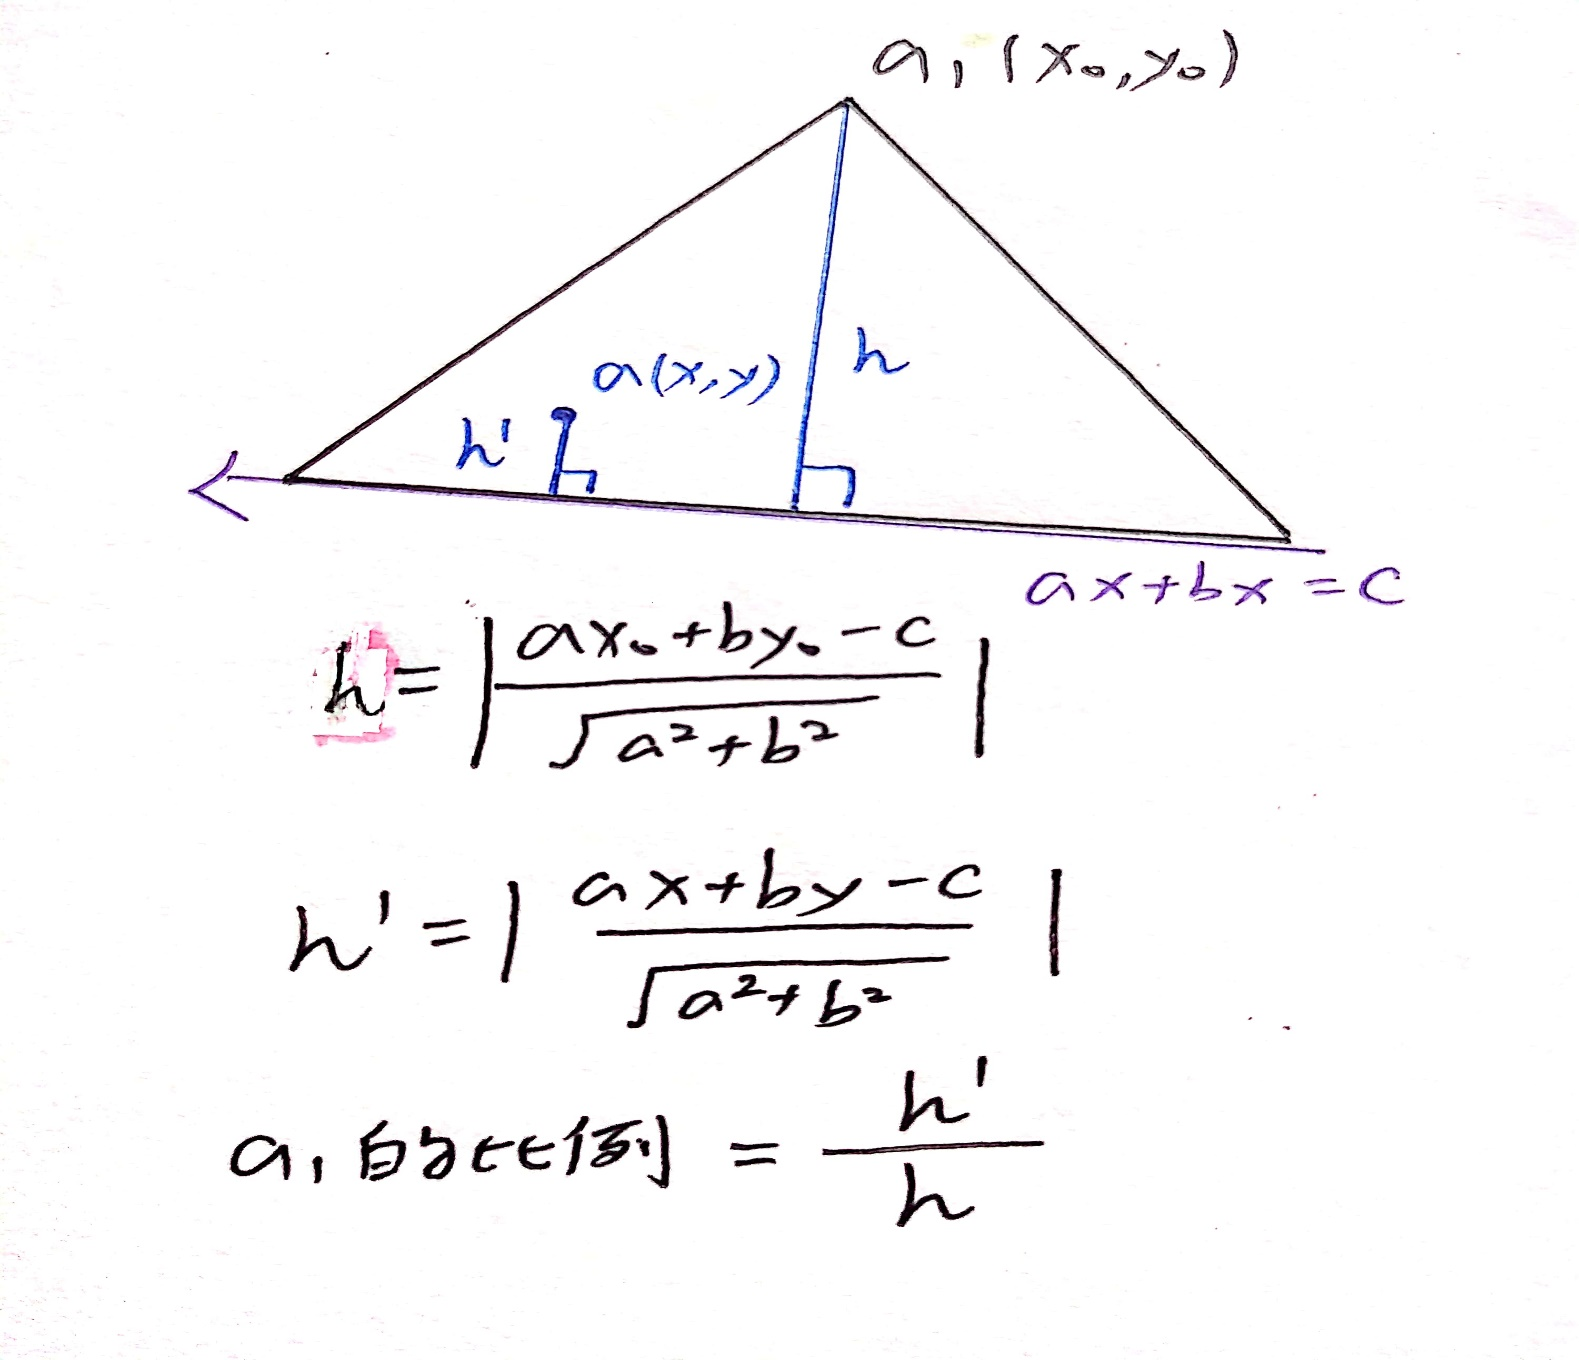 a₁(x₀,y₀)
a(x,y)
h
h'
ax+bx=c
h=|(ax₀+by₀-c)/√(a²+b²)|
h'=|(ax+by-c)/√(a²+b²)|
a₁的比例 = h'/h